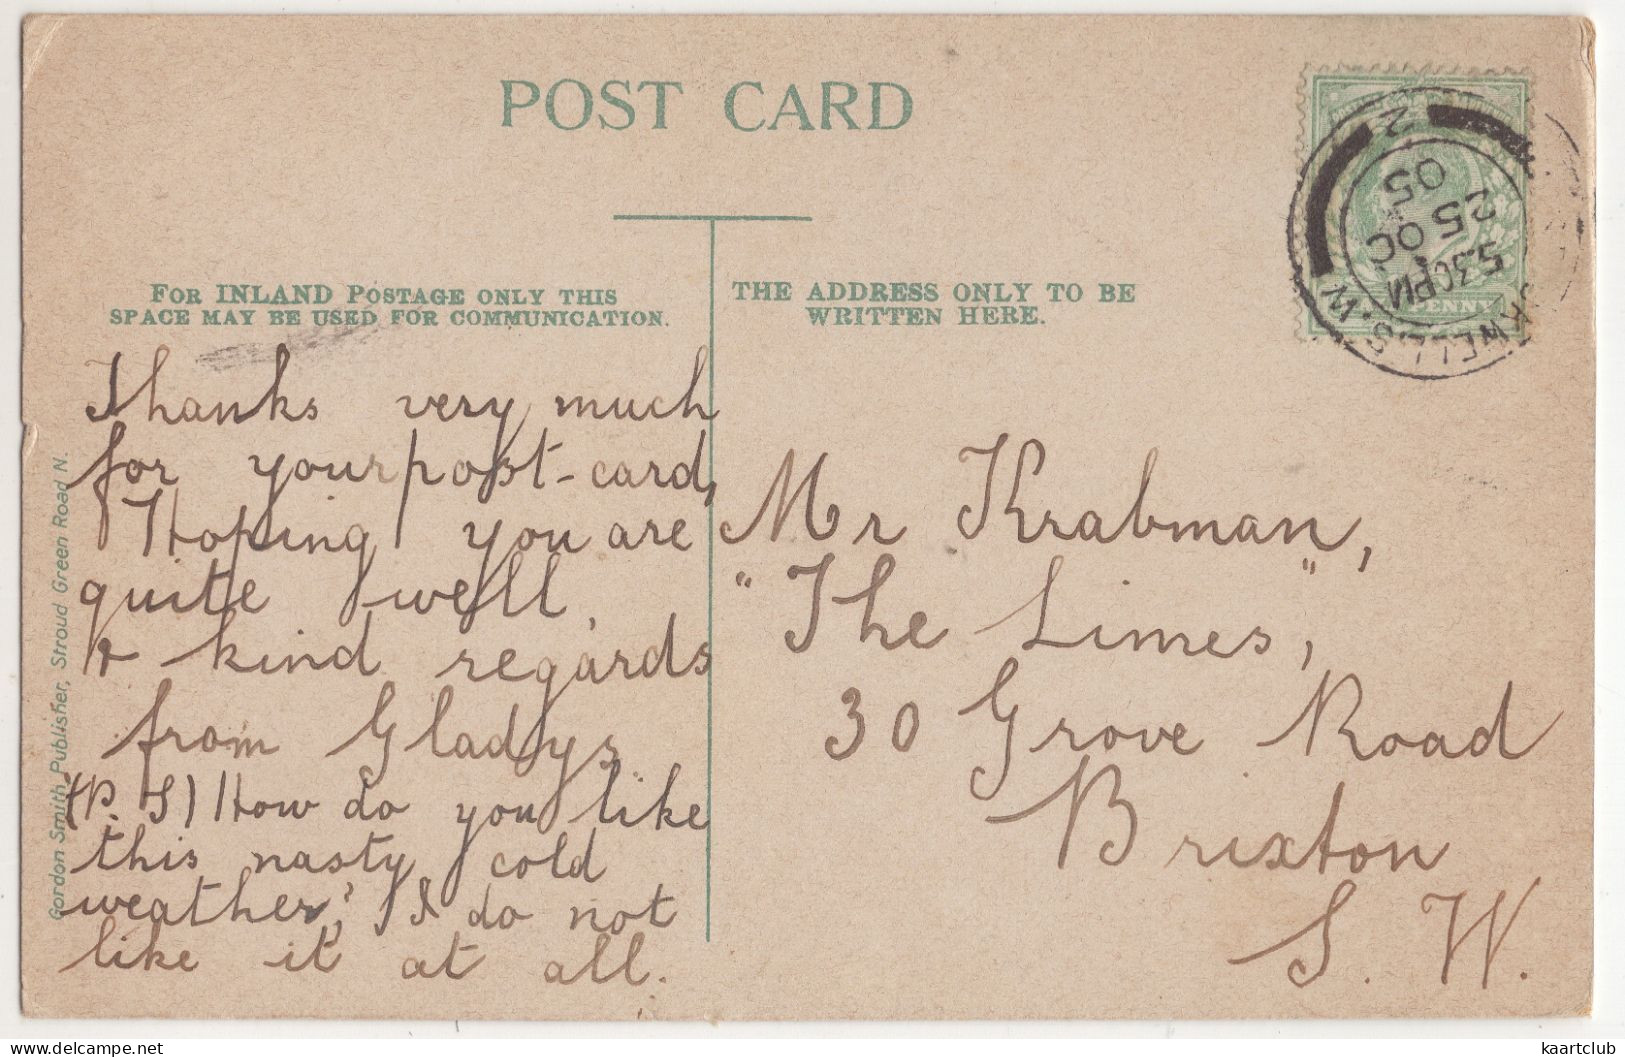 POST CARD
FOR INLAND POSTAGE ONLY THIS
SPACE MAY BE USED FOR COMMUNICATION.
THE ADDRESS ONLY TO BE
WRITTEN HERE.
2
5.30PM
25 OC
05
KWELL S.W
PENNY
Thanks very much
for your post-card,
Hoping you are
quite well,
& kind regards
from Gladys.
(P.S) How do you like
this nasty cold
weather? I do not
like it at all.
Mr Krabman,
"The Limes",
30 Grove Road
Brixton
S. W.
Gordon Smith, Publisher, Stroud Green Road N.
kaartclub